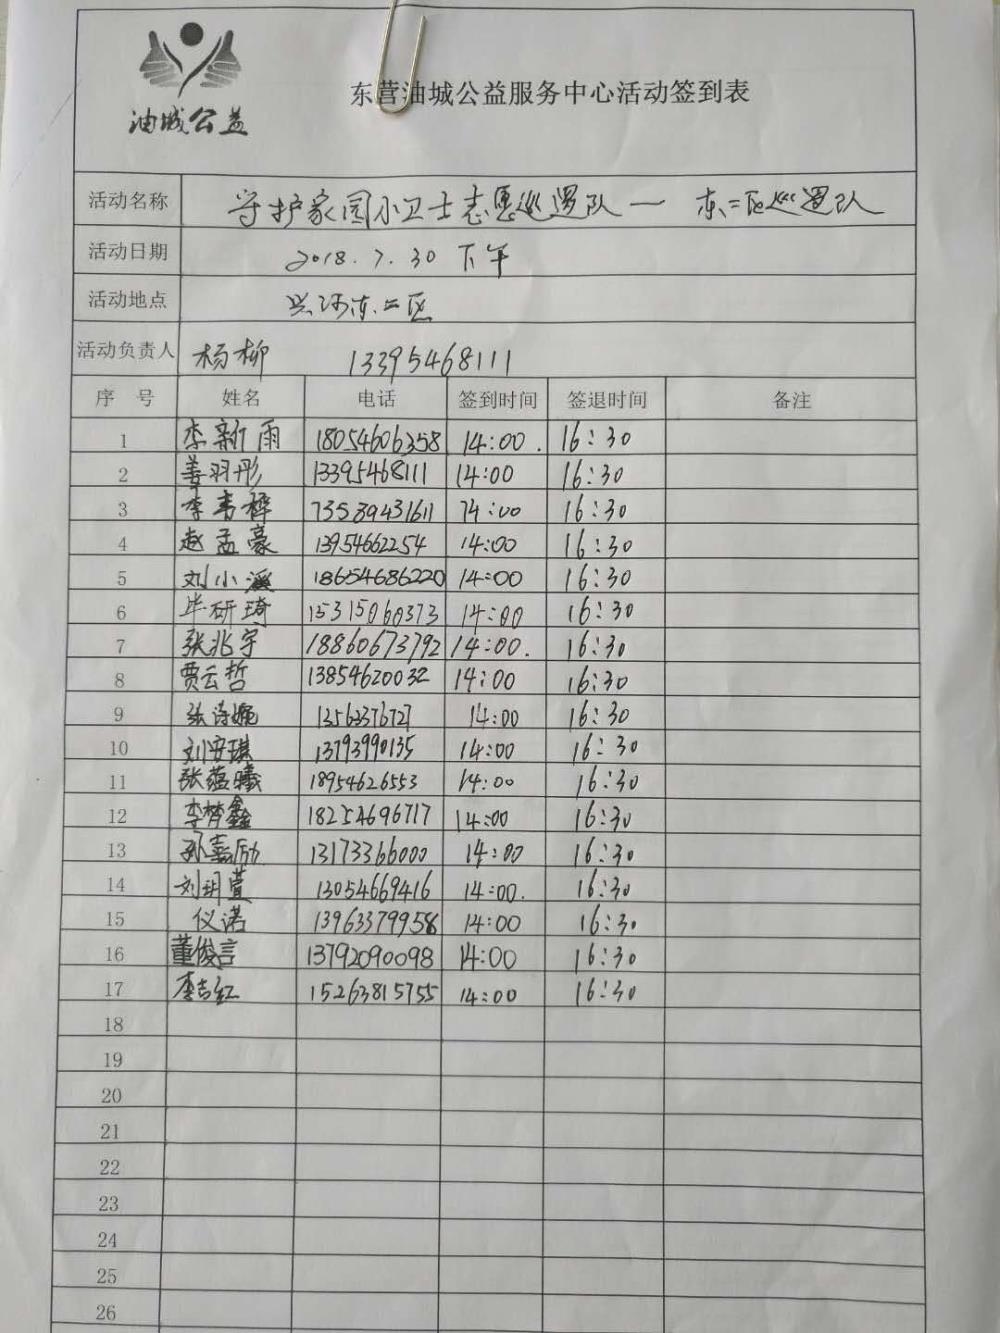 油城公益
东营油城公益服务中心活动签到表
活动名称 守护家园小卫士志愿巡逻队一 东二区巡逻队
活动日期 2018.7.30 下午
活动地点 兴河东二区
活动负责人 杨柳 13395468111
序 号 姓名 电话 签到时间 签退时间 备注
1 李新雨 18054606358 14:00. 16:30
2 姜羽彤 13395468111 14:00 16:30
3 李韦桦 73589431611 14:00 16:30
4 赵孟豪 13954662254 14:00 16:30
5 刘小溪 18654686220 14:00 16:30
6 毕研琦 15315060373 14:00 16:30
7 张兆宇 18860673792 14:00. 16:30
8 贾云哲 13854620032 14:00 16:30
9 张诗婉 1356376727 14:00 16:30
10 刘安琪 13793990135 14:00 16:30
11 张蕴曦 18954626553 14:00 16:30
12 李梦鑫 18254696717 14:00 16:30
13 孙嘉励 13173366000 14:00 16:30
14 刘玥萱 13054669416 14:00. 16:30
15 仪诺 13963379958 14:00 16:30
16 董俊言 13792090098 14:00 16:30
17 李吉红 15263815755 14:00 16:30
18
19
20
21
22
23
24
25
26